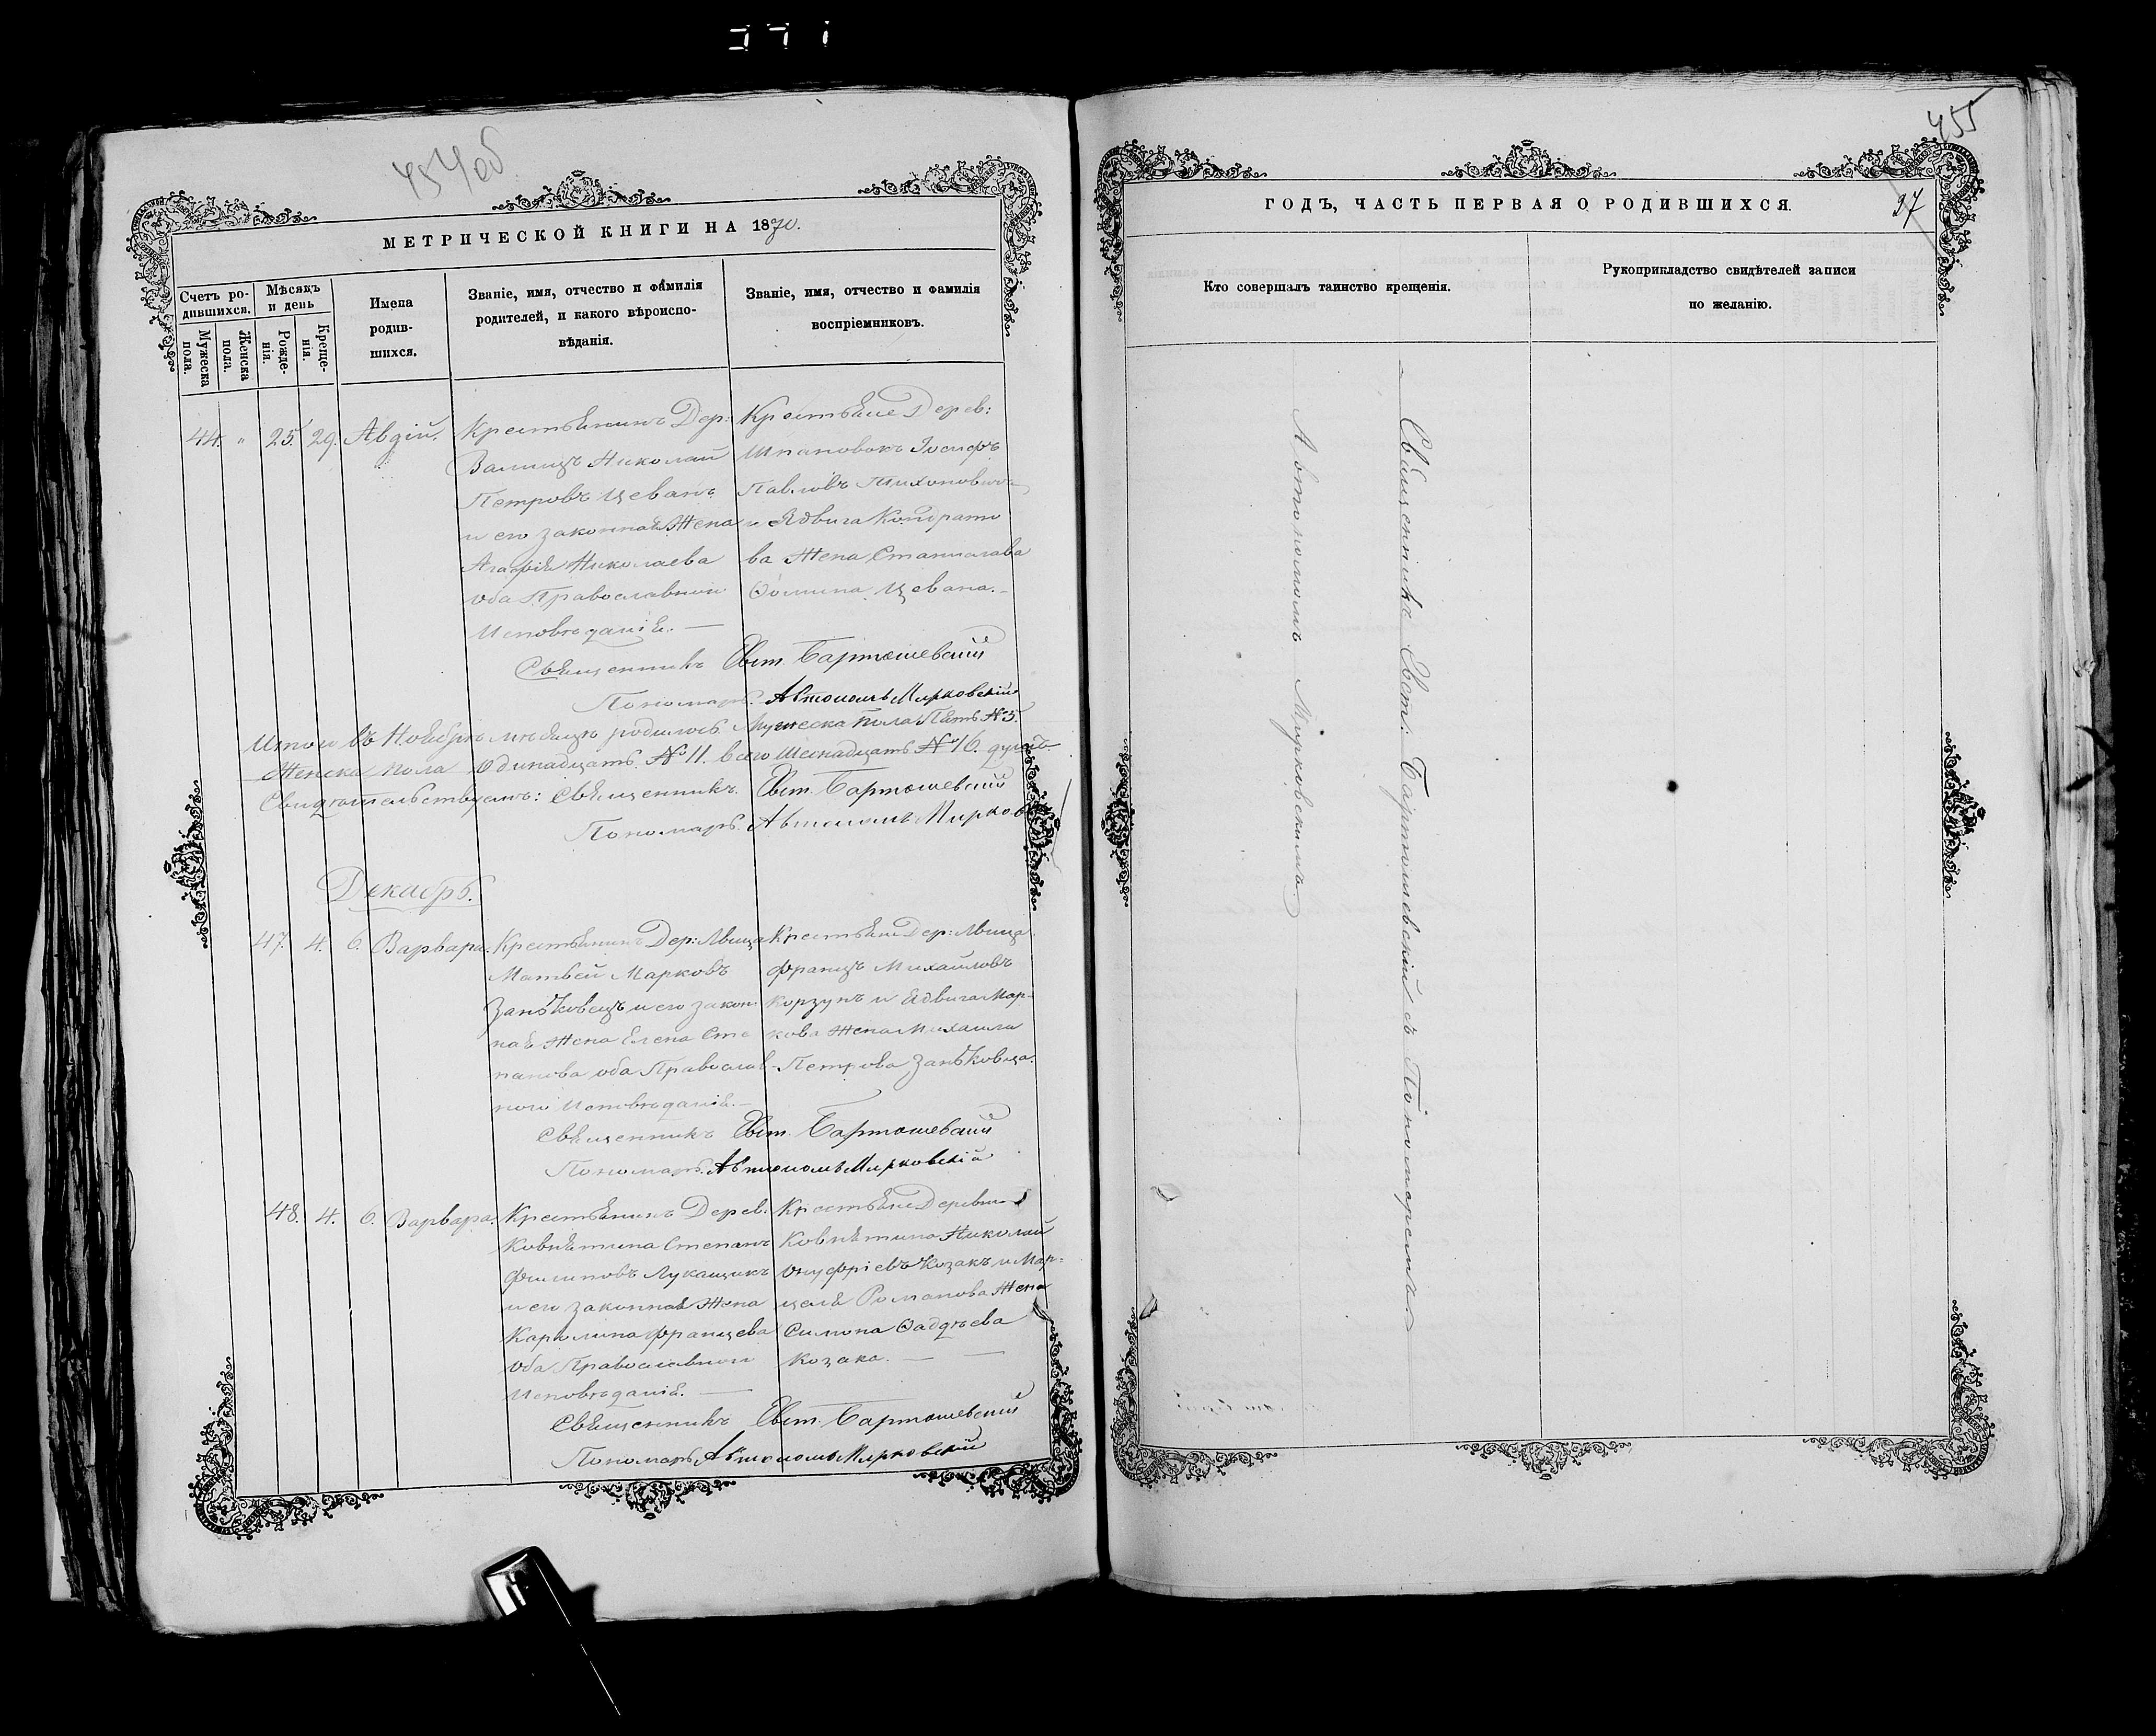 454об
МЕТРИЧЕСКОЙ КНИГИ НА 1870.
Счетъ родившихся.
Мужеска пола.
Женска пола.
Мѣсяцъ и день
Рожденія.
Крещенія.
Имена родившихся.
Званіе, имя, отчество и фамилія
родителей, и какого вѣроиспо-
вѣданія.
Званіе, имя, отчество и фамилія
воспріемниковъ.
44. " 25. 29. Авдій.
Крестьянинъ Дер:
Николай
Петровъ Цеванъ
и его законная Жена
Агафія Николаева
оба Православнои
Исповѣданія. —
Крестьяне Дерев:
Шпановокъ Іосифъ
Павловъ Тихоновичъ
и Ядвига Кондрато
ва Жена Станислава
Ѳомина Цевана. -
Священникъ Евст. Бартошевскій
Пономарь. Автономъ Мирковскій
Итого въ Ноябрѣ мѣсяцѣ родилось. Мужеска пола Пять №5.
Женска пола Одинадцать №11. всего Шеснадцать №16. душъ
Свидѣтельствуемъ: Священникъ Евст. Бартошевскій
Пономарь. Автономъ Мирков
Декабрь.
47. 4. 6. Варвара.
Крестьянинъ Дер:
Матвей Марковъ
Занѣковецъ и его закон
ная Жена Елена Сте
панова оба Православ-
ного Исповѣданія. —
Крестьяне Дер:
Францъ Михайловъ
Корзунъ и Ядвига Мар-
кова Жена Михаила
Петрова Занѣковца.
Священникъ Евст. Бартошевскій
Пономарь. Автономъ Мирковскій
48. 4. 6. Варвара.
Крестьянинъ Дерев.
Ковнятина Степанъ
Филиповъ Лукащикъ
и его законная Жена
Каролина Францева
оба Православнои
Исповѣданія. —
Крестьяне Деревни
Ковнятина Николай
Онуфріевъ Козакъ и Мар-
целя Романова Жена
Симона Ѳадѣева
Козака. — —
Священникъ Евст. Бартошевскій
Пономарь Автономъ Мирковскій
455
97
ГОДЪ, ЧАСТЬ ПЕРВАЯ О РОДИВШИХСЯ.
Кто совершалъ таинство крещенія.
Рукоприкладство свидѣтелей записи
по желанію.
Священникъ Евст: Бартошевскій съ Пономаремъ
Автономомъ Мирковскимъ